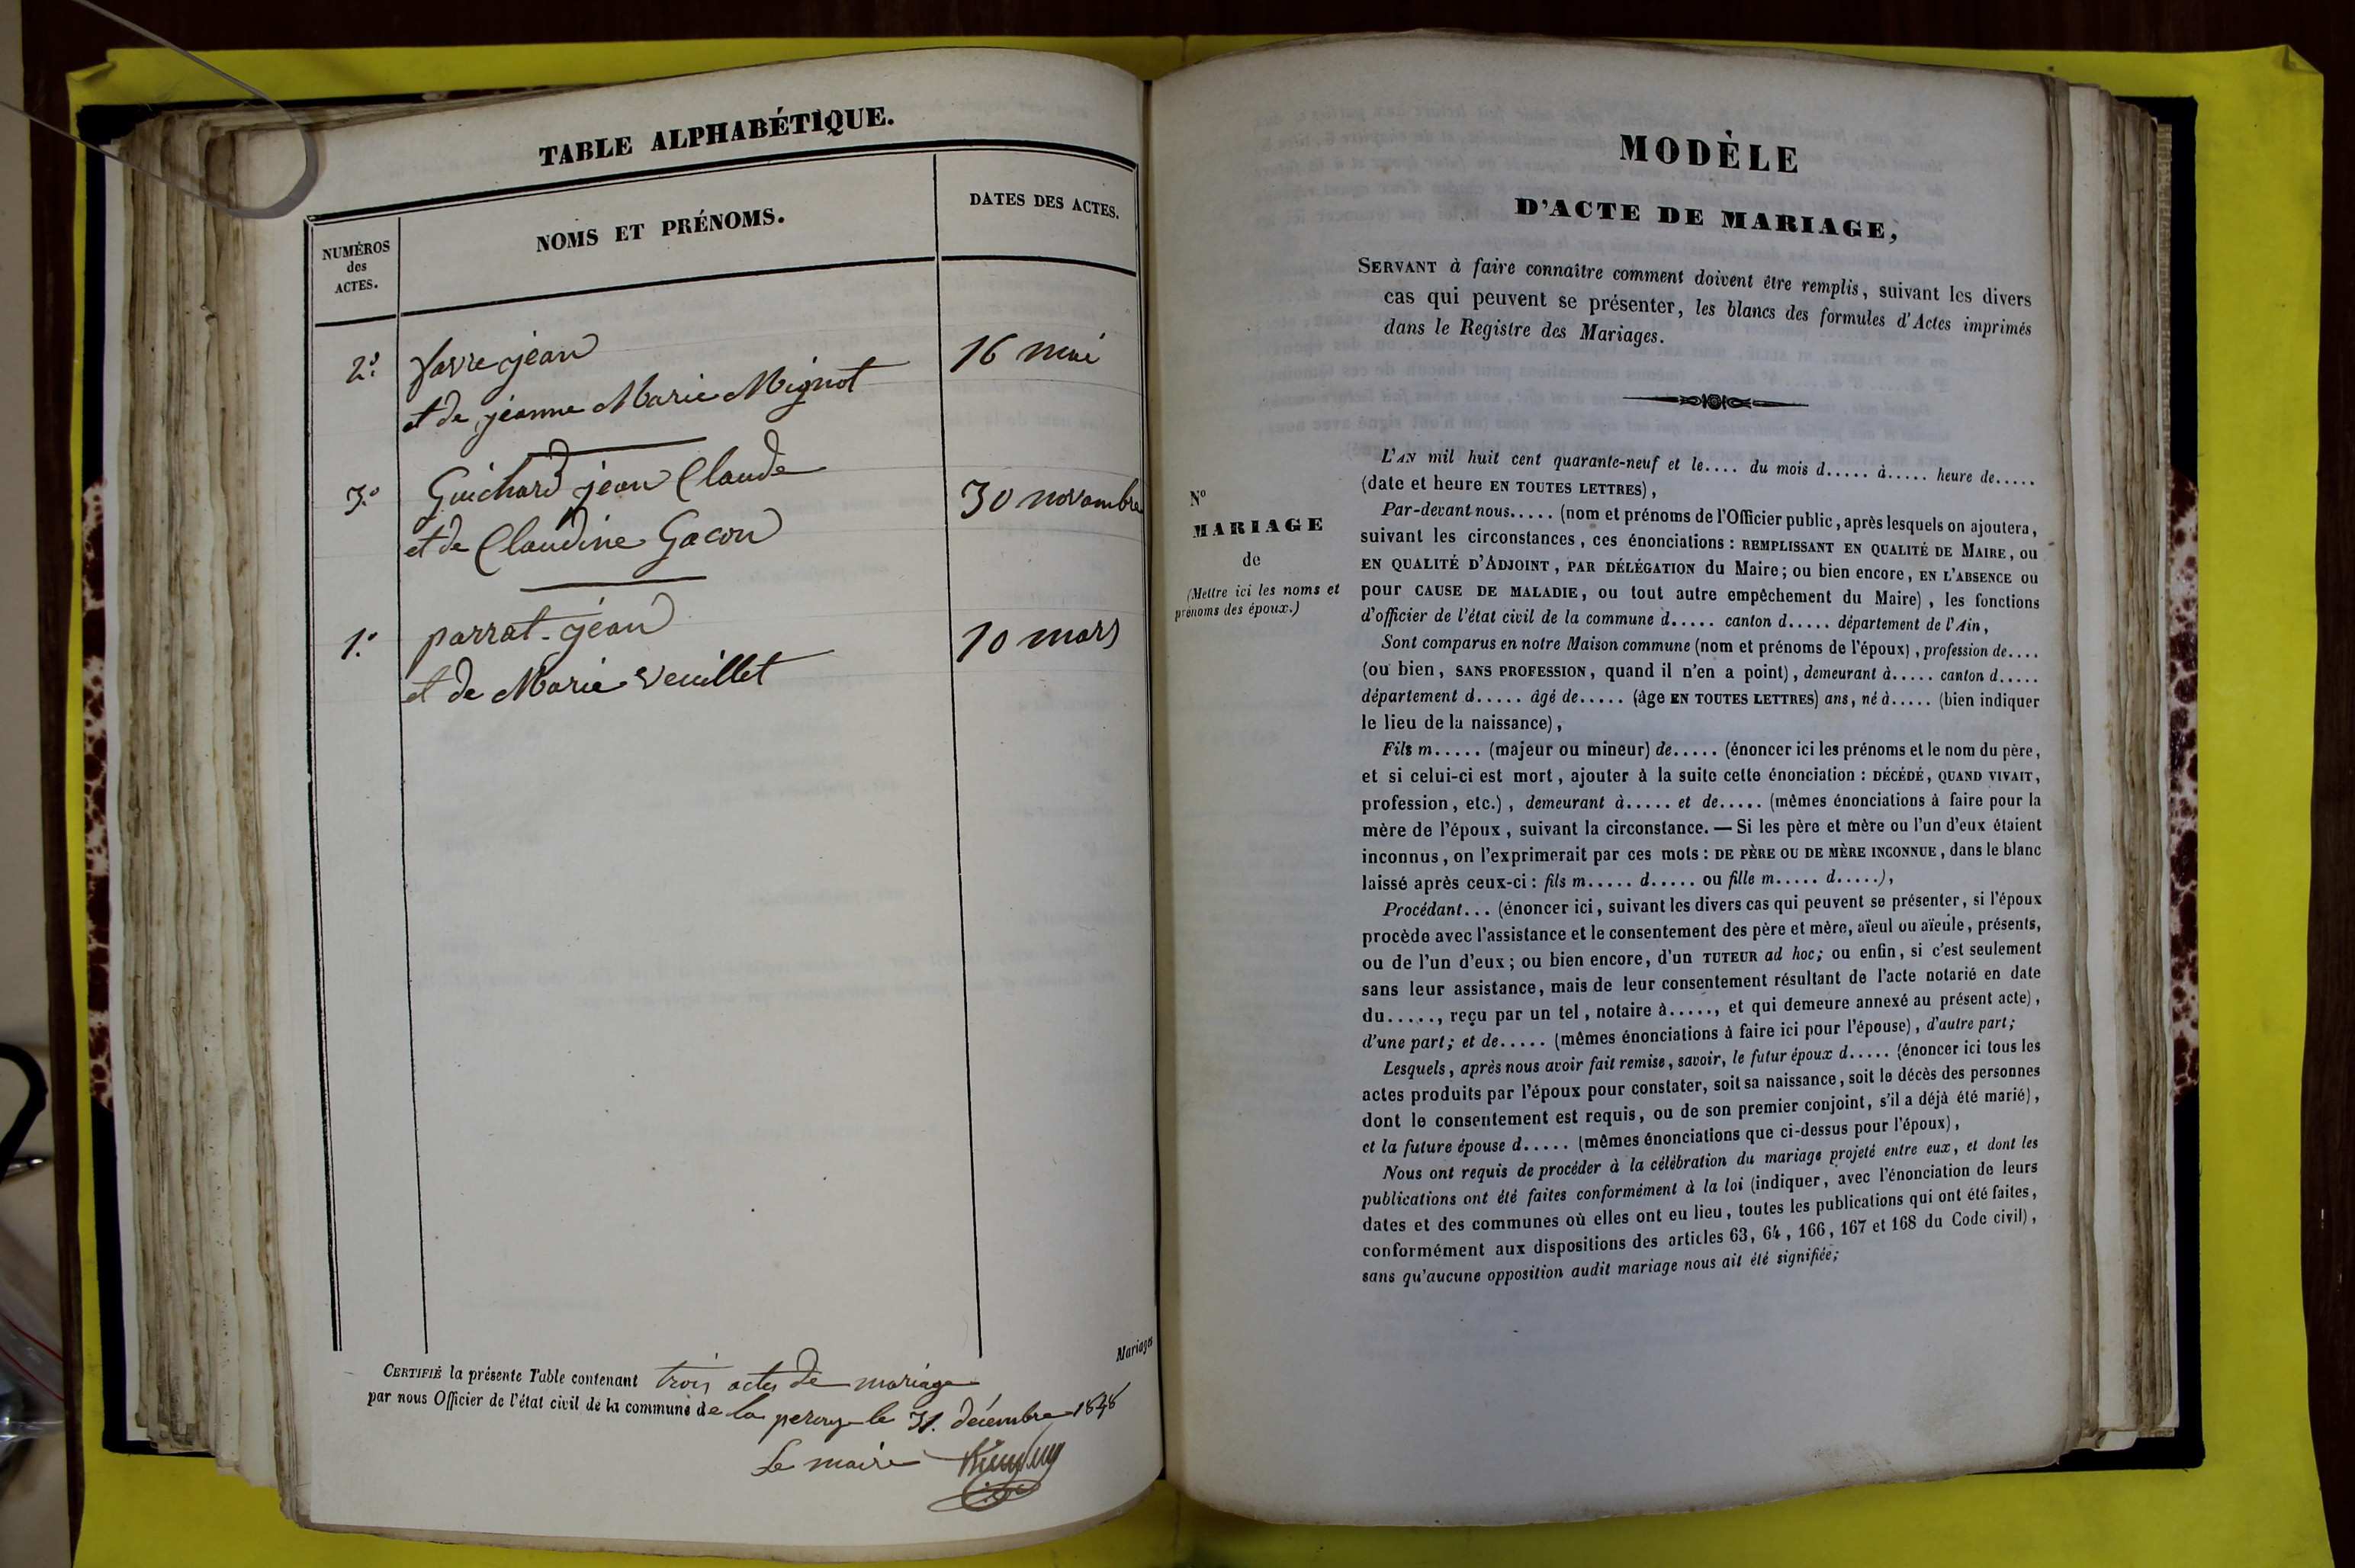 TABLE ALPHABÉTIQUE.
NUMÉROS
des
ACTES.
NOMS ET PRÉNOMS.
DATES DES ACTES.
2.º favre jean 16 mai
et de jeanne Marie Mignot
3.º Guichard jean Claude 30 novembre
et de Claudine Gacon
1.º parrat jean 10 mars
et de Marie Veuillet
Mariages
CERTIFIÉ la présente Table contenant trois actes de mariage
par nous Officier de l'état civil de la commune de la perouse le 31. décembre 1848
Le maire
MODÈLE
D'ACTE DE MARIAGE,
SERVANT à faire connaître comment doivent être remplis, suivant les divers
cas qui peuvent se présenter, les blancs des formules d'Actes imprimés
dans le Registre des Mariages.
Nº
MARIAGE
de
(Mettre ici les noms et
prénoms des époux.)
L'AN mil huit cent quarante-neuf et le.... du mois d..... à..... heure de.....
(date et heure EN TOUTES LETTRES),
Par-devant nous..... (nom et prénoms de l'Officier public, après lesquels on ajoutera,
suivant les circonstances, ces énonciations : REMPLISSANT EN QUALITÉ DE MAIRE, ou
EN QUALITÉ D'ADJOINT, PAR DÉLÉGATION du Maire; ou bien encore, EN L'ABSENCE ou
pour CAUSE DE MALADIE, ou tout autre empêchement du Maire), les fonctions
d'officier de l'état civil de la commune d..... canton d..... département de l'Ain,
Sont comparus en notre Maison commune (nom et prénoms de l'époux), profession de....
(ou bien, SANS PROFESSION, quand il n'en a point), demeurant à..... canton d.....
département d..... âgé de..... (âge EN TOUTES LETTRES) ans, né à..... (bien indiquer
le lieu de la naissance),
Fils m..... (majeur ou mineur) de..... (énoncer ici les prénoms et le nom du père,
et si celui-ci est mort, ajouter à la suite cette énonciation : DÉCÉDÉ, QUAND VIVAIT,
profession, etc.), demeurant à..... et de..... (mêmes énonciations à faire pour la
mère de l'époux, suivant la circonstance. — Si les père et mère ou l'un d'eux étaient
inconnus, on l'exprimerait par ces mots : DE PÈRE OU DE MÈRE INCONNUE, dans le blanc
laissé après ceux-ci : fils m..... d..... ou fille m..... d.....),
Procédant... (énoncer ici, suivant les divers cas qui peuvent se présenter, si l'époux
procède avec l'assistance et le consentement des père et mère, aïeul ou aïeule, présents,
ou de l'un d'eux; ou bien encore, d'un TUTEUR ad hoc; ou enfin, si c'est seulement
sans leur assistance, mais de leur consentement résultant de l'acte notarié en date
du....., reçu par un tel, notaire à....., et qui demeure annexé au présent acte),
d'une part; et de..... (mêmes énonciations à faire ici pour l'épouse), d'autre part;
Lesquels, après nous avoir fait remise, savoir, le futur époux d..... (énoncer ici tous les
actes produits par l'époux pour constater, soit sa naissance, soit le décès des personnes
dont le consentement est requis, ou de son premier conjoint, s'il a déjà été marié),
et la future épouse d..... (mêmes énonciations que ci-dessus pour l'époux),
Nous ont requis de procéder à la célébration du mariage projeté entre eux, et dont les
publications ont été faites conformément à la loi (indiquer, avec l'énonciation de leurs
dates et des communes où elles ont eu lieu, toutes les publications qui ont été faites,
conformément aux dispositions des articles 63, 64, 166, 167 et 168 du Code civil),
sans qu'aucune opposition audit mariage nous ait été signifiée;